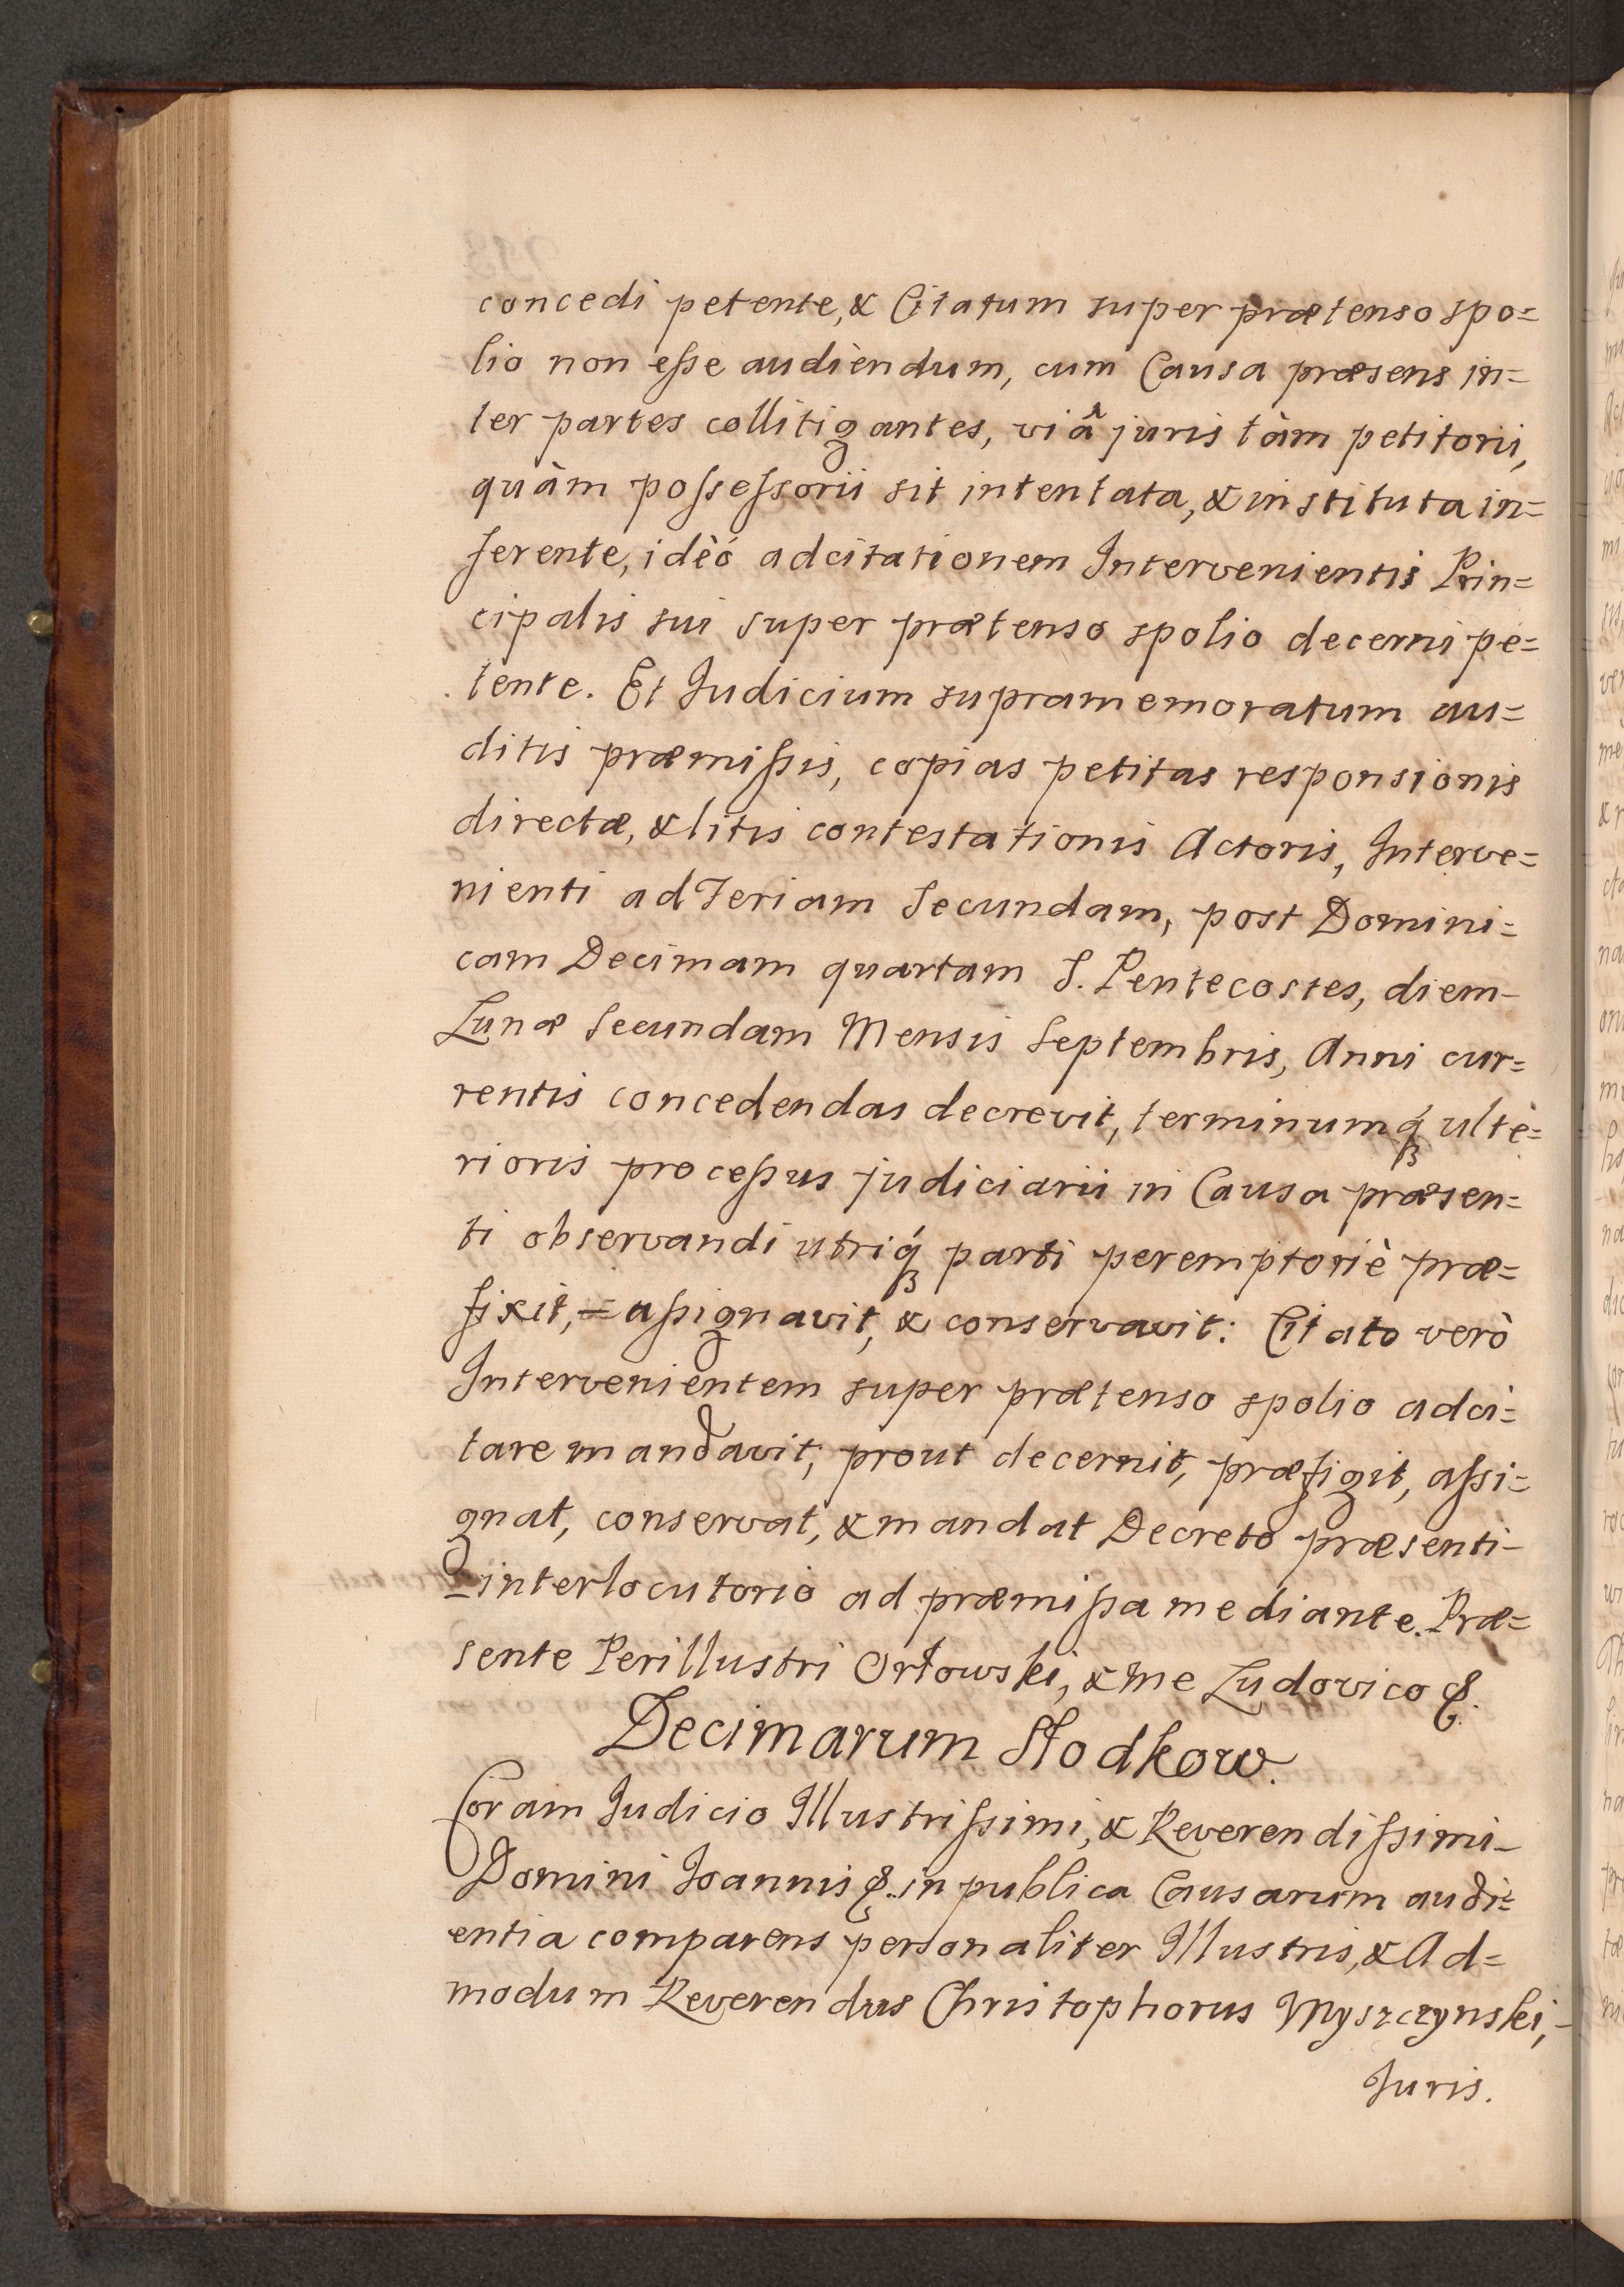 concedi petente, & Citatum super prætenso spo=
lio non eſse audiendum, cum Causa præsens in=
ter partes collitigantes, viâ juris tàm petitorii,
quàm poſseſsorii sit intentata, & instituta in=
ferente, idèó adcitationem Intervenientis Prin=
cipalis sui super prætenso spolio decerni pe=
tente. Et Judicium supramemoratum au=
ditis præmiſsis, copias petitas responsionis
directæ, & litis contestationis Actoris, Interve=
nienti ad Feriam Secundam, post Domini=
cam Decimam quartam S. Pentecostes, diem-
Lunæ Secundam Mensis Septembris, Anni cur=
rentis concedendas decrevit, terminumq́ꝫ ultè=
rioris proceſsus judiciarii in Causa præsen=
ti observandi utriq́ꝫ parti peremptoriè præ=
fixit, = aſsignavit, & conservavit: Citato verò
Intervenientem super prætenso spolio adci=
tare mandavit, prout decernit, præfigit, aſsi=
gnat, conservat, & mandat Decreto præsenti-
=interlocutorio ad præmiſsa mediante. Præ=
sente Perillustri Orłowski, & me Ludovico &.
Decimarum Słodkow.
Coram Judicio Illustriſsimi, & Reverendiſsimi-
Domini Joannis &. in publica Causarum audi=
entia comparens personaliter Illustris, & Ad=
modum Reverendus Christophorus Myszczynski,-
Juris.